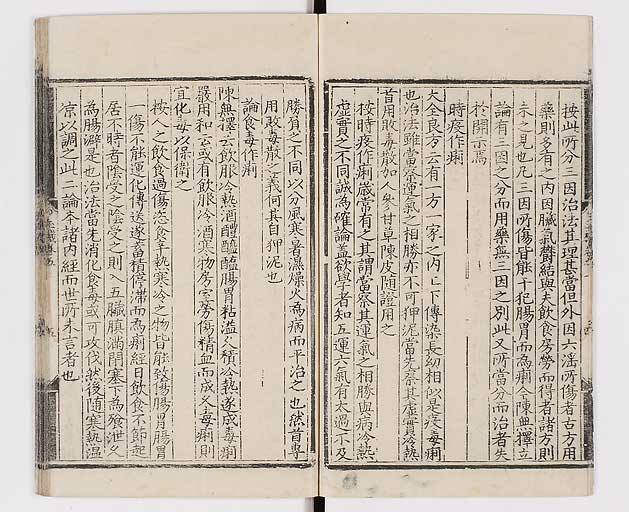 按此所分三因治法其理甚當但外因六淫所傷者古方用
藥則多有之內因臟氣欝結與夫飲食房勞而得者諸方則
未之見也凡三因所傷皆能干犯腸胃而為痢今陳無擇立
論有三因之分而用藥無三因之別此又所當分而治者失
於開示焉
時疫作痢
大全良方云有一方一家之內上下傳染長幼相似是疫毒痢
也治法雖當察運氣之相勝亦不可抻泥當先察其虛實冷熱
首用敗毒散加人參甘草陳皮隨證用之
按時疫作痢歲常有之其謂當察其運氣之相勝與病冷熱
虛實之不同誠為確論蓋欲學者知五運六氣有太過不及
勝負之不同以分風寒暑濕燥火為病而平治之也然首專
用敗毒散之義何其自抻泥也
論食毒作痢
陳無擇云飲服冷熱酒醴醯醢腸胃粘溢久積冷熱遂成毒痢
嚴用和云或有飲服冷酒寒物房室勞傷精血而成久毒痢則
宜化毒以保衛之
按人之飲食過傷恣食辛熱寒冷之物皆能致傷腸胃腸胃
一傷不能運化傳送遂蓄積停滯而為痢經曰飲食不節起
居不時者陰受之陰受之則入五臟䐜滿閉塞下為飱泄久
為腸澼是也治法當先消化食毒或可攻伐然後隨寒熱溫
凉以調之此二論本諸內經而世所未言者也